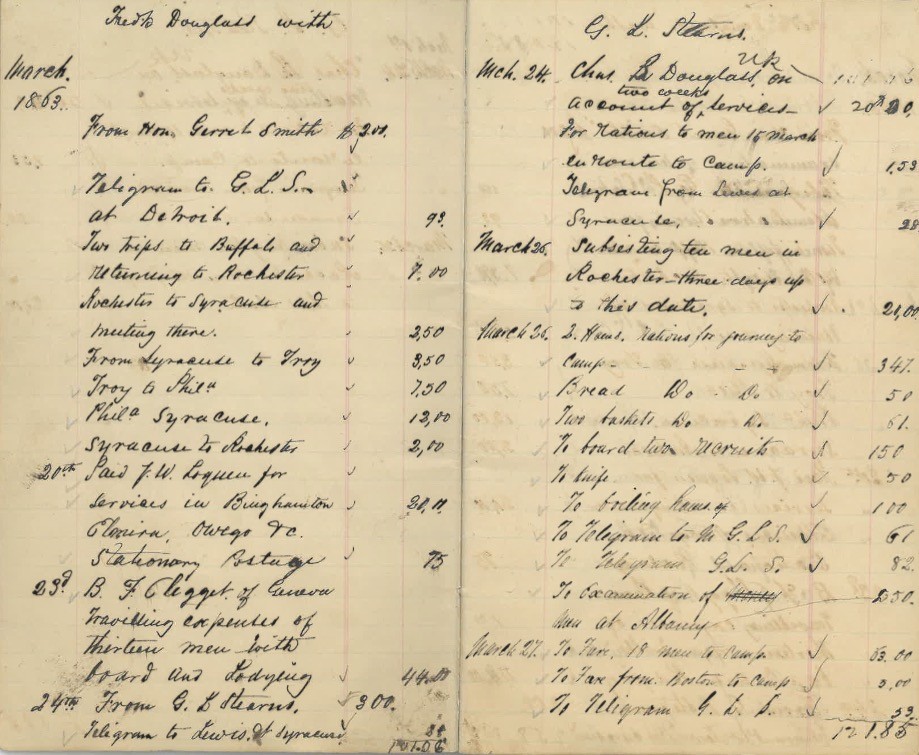 Fredk Douglass with
March.
1863.
From Hon. Gerret Smith $ 200.
Teligram to G. L. S.
at Detroit. 93.
Two trips to Buffalo and
returning to Rochester 7.00
Rochester to Syracuse and
meeting there. 2,50
From Syracuse to Troy 3,50
Troy to Phila 7,50
Phila Syracuse. 12,00
Syracuse to Rochester 2,00
20th Paid J. W. Loguen for
services in Binghamton
Elmira, Owego &c.
Stationary Postage 75
23d B. F. Clegget of Geneva
Travelling expenses of
thirteen men with
board and Lodging 44.00
24th From G. L Stearns. 300.
Telegram to Lewis at Syracuse
G. L. Stearns.
Mch. 24. Chas. R Douglass, on
account of two weeks services
For Rations to men 15 March
en route to Camp. 1,53
Telegram from Lewis at
Syracuse. 28
March 26. Subsisting ten men in
Rochester - three days up
to this date. 21,00
March 26. 2. Hams. Rations for journey to
Camp - - - 347.
Bread Do - Do 50
Two baskets Do Do. 61.
To board two recruits 150
To knife 50
To boiling hams 100
To Telegram to M G. L. S. 61
To Telegram G. L. S. 82.
To Examination of
men at Albany
March 27. To Fare. 18 men to Camp 63.00
To Fare from Boston to Camp 3,00
To Telegram G. L. S. 53
121.85